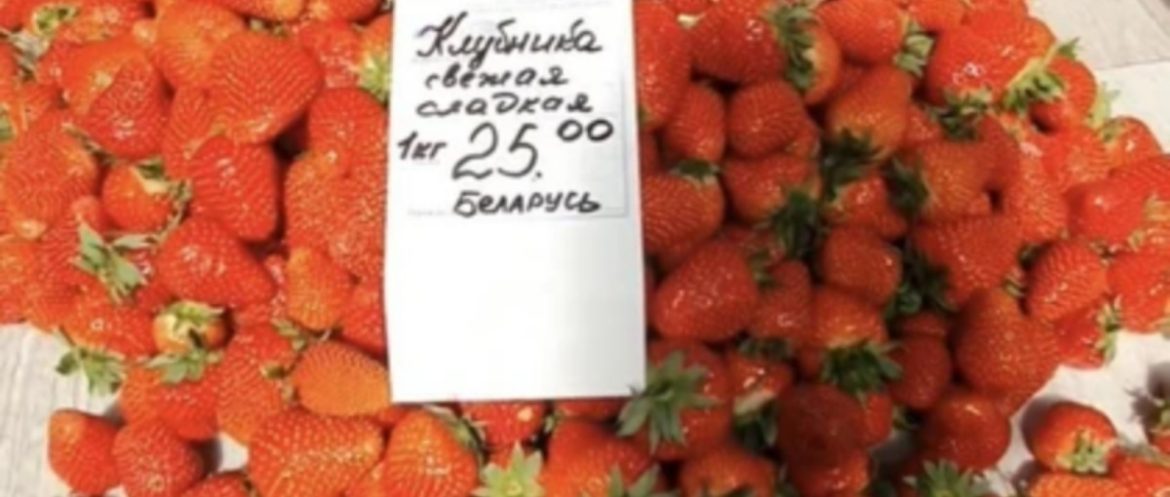 Клубника
свежая
сладкая
1кг 25.00
Беларусь